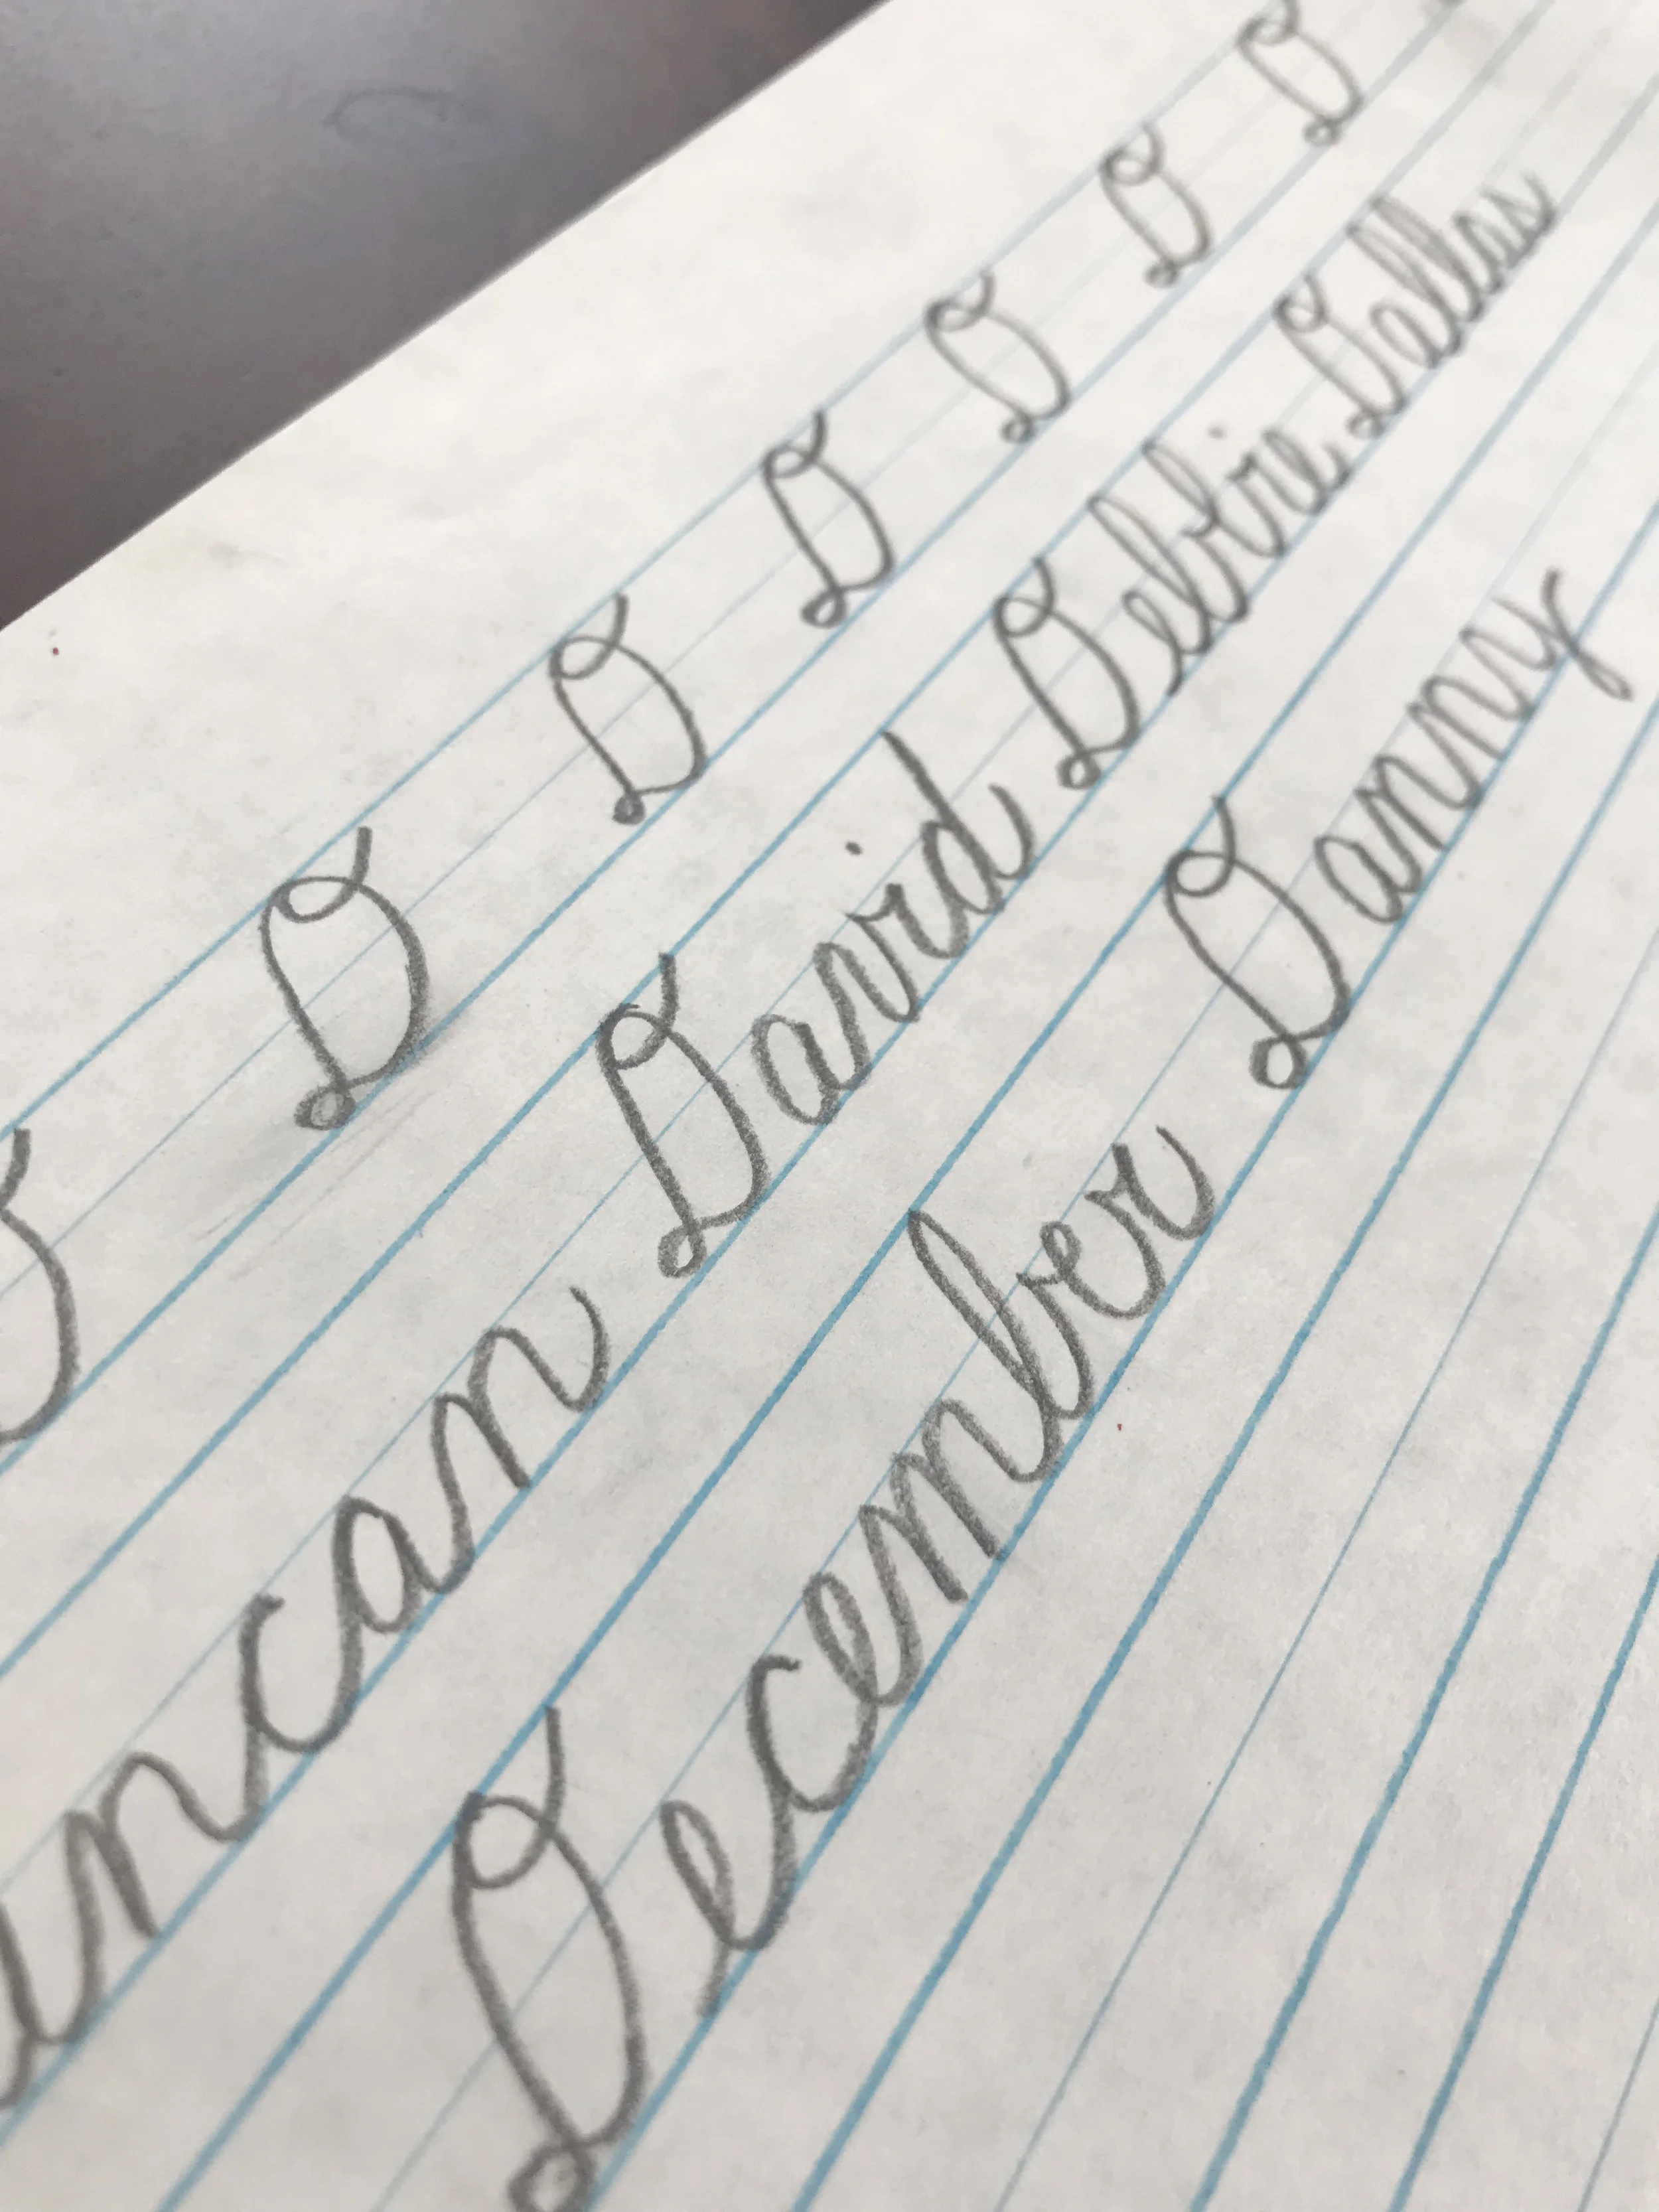 D D D D D D D
uncan David Debbie Dallas
December Danny